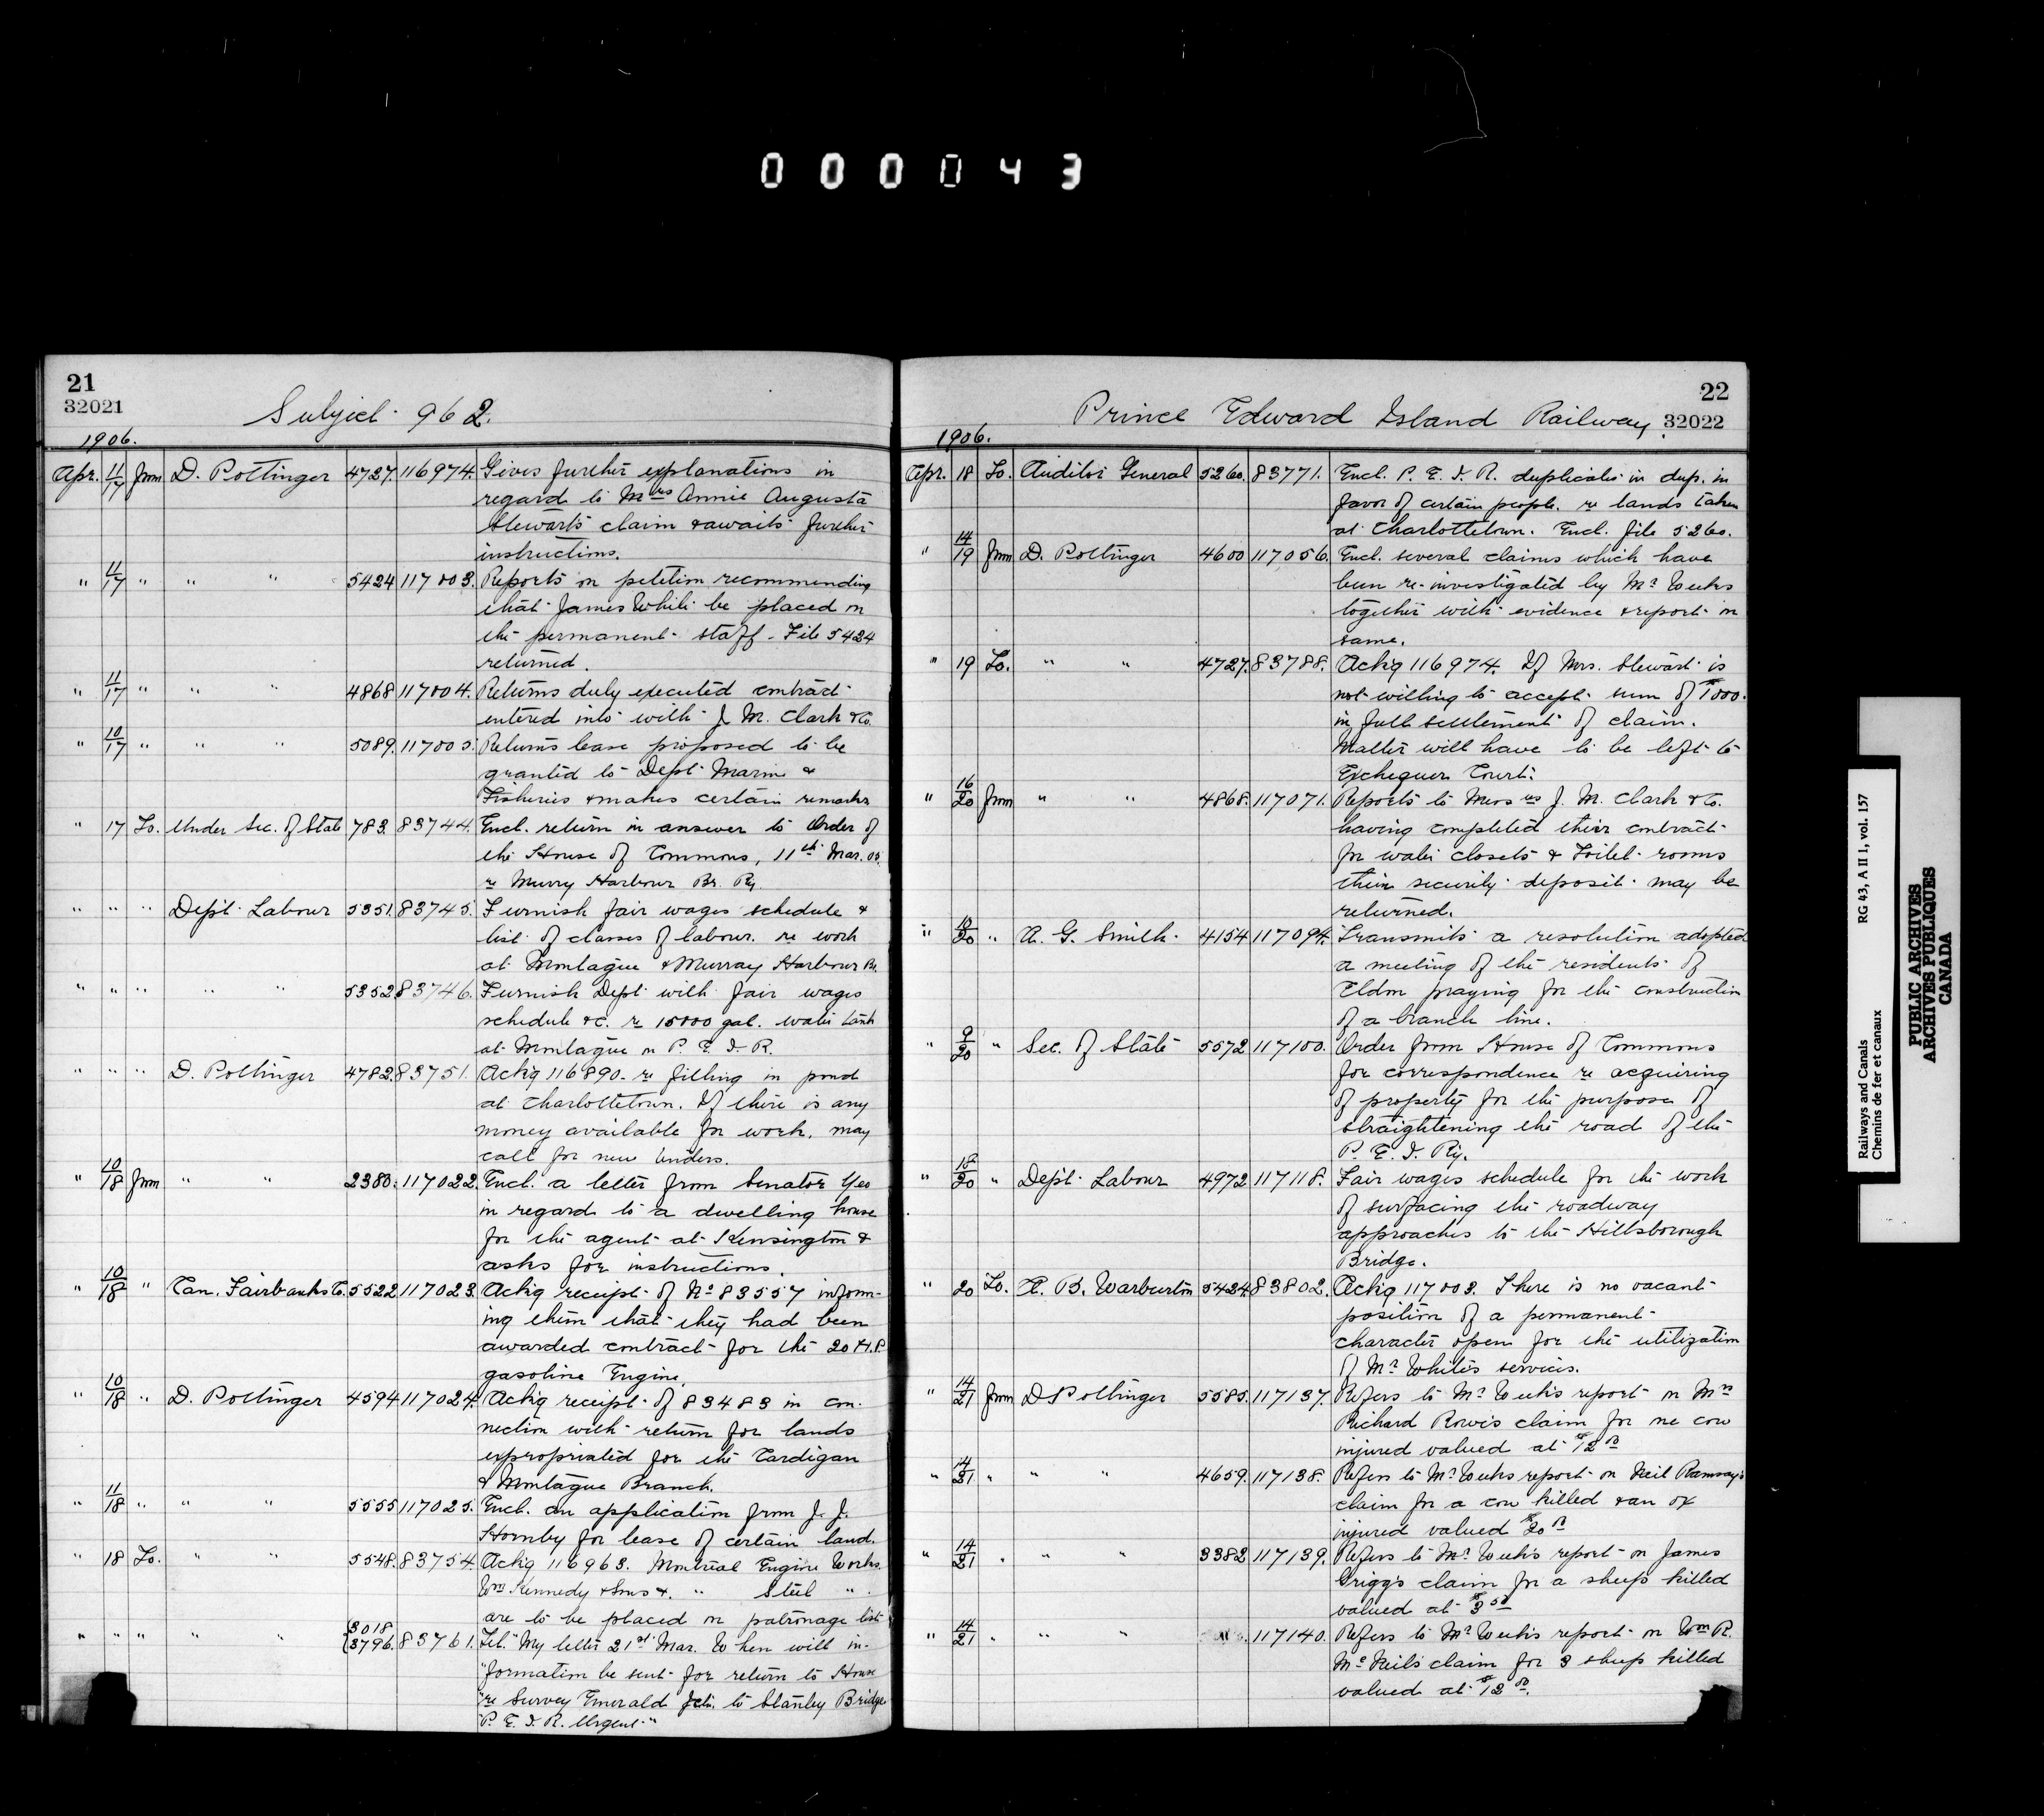 000043
21
32021
Subject 962.
1906.
Apr. 11/17 from D. Pottinger 4727. 116974. Gives further explanations in
regard to Mrs Annie Augusta
Stewart's claim & awaits further
instructions.
" 11/17 " " " 5424 117003. Reports on petition recommending
that James White be placed on
the permanent staff. File 5424
returned.
" 11/17 " " " 4868 117004. Returns duly executed contract
entered into with J. M. Clark & Co.
" 10/17 " " " 5089. 117005. Returns lease proposed to be
granted to Dept Marine &
Fisheries & makes certain remarks
" 17 To. Under Sec. of State 783. 83744. Encl. return in answer to Order of
the House of Commons, 11th Mar. 05.
re Murry Harbour Br. Ry.
" " " Dept. Labour 5351. 83745. Furnish fair wages schedule &
list of classes of labour. re work
at Montague & Murray Harbour Br.
" " " " " 5352 83746. Furnish Dept with fair wages
schedule &c. re 15000 gal. water tank
at Montague on P. E. I. R.
" " " D. Pottinger 4782. 83751. Ack'g 116890. re filling in pond
at Charlottetown. If there is any
money available for work, may
call for new tenders.
" 10/18 from " " 2380. 117022. Encl. a letter from Senator Yeo
in regard to a dwelling house
for the agent at Kensington &
asks for instructions.
" 10/18 " Can. Fairbanks Co. 5522 117023. Ack'g receipt of No 83557 inform-
ing them that they had been
awarded contract for the 20 H.P.
gasoline Engine.
" 10/18 " D. Pottinger 4594 117024. Ack'g receipt of 83483 in con-
nection with return for lands
expropriated for the Cardigan
& Montague Branch.
" 11/18 " " " 5555 117025. Encl. an application from J. J.
Hornby for lease of certain land.
" 18 To. " " 5548. 83754. Ack'g 116963. Montreal Engine Works
Wm Kennedy & Sons & " Steel "
are to be placed on patronage list
" " " " " {3018 {3796. 83761. Tel. "My letter 21st Mar. When will in-
"formation be sent for return to House
"re Survey Emerald Jctn. to Stanley Bridge
"P. E. I. R. Urgent."
22
Prince Edward Island Railway. 32022
1906.
Apr. 18 To. Auditor General 5260. 83771. Encl. P. E. I. R. duplicate in dup. in
favor of certain people. re lands taken
at Charlottetown. Encl. file 5260.
" 14/19 from D. Pottinger 4600 117056. Encl. several claims which have
been re-investigated by Mr Weeks
together with evidence & report on
same.
" 19 To. " " 4727. 83788. Ack'g 116974. If Mrs. Stewart is
not willing to accept sum of $1000.
in full settlement of claim.
Matter will have to be left to
Exchequer Court.
" 16/20 from " " 4868. 117071. Reports to Messrs J. M. Clark & Co.
having completed their contract
for water closets & toilet rooms
their security deposit may be
returned.
" 18/20 " A. G. Smith 4154 117094. Transmits a resolution adopted
a meeting of the residents of
Eldon praying for the construction
of a branch line.
" 9/20 " Sec. of State 5572 117100. Order from House of Commons
for correspondence re acquiring
of property for the purpose of
straightening the road of the
P. E. I. Ry.
" 18/20 " Dept. Labour 4972 117118. Fair wages schedule for the work
of surfacing the roadway
approaches to the Hillsborough
Bridge.
" 20 To. A. B. Warburton 5424. 83802. Ack'g 117003. There is no vacant
position of a permanent
character open for the utilization
of Mr White's services.
" 14/21 from D Pottinger 5585. 117137. Refers to Mr Week's report on Mrs
Richard Rowe's claim for one cow
injured valued at $12.00
" 14/21 " " " 4659. 117138. Refers to Mr Weeks report on Neil Ramsay's
claim for a cow killed & an ox
injured valued $20.00
" 14/21 " " " 3382 117139. Refers to Mr Week's report on James
Grigg's claim for a sheep killed
valued at $3.50
" 14/21 " " " 117140. Refers to Mr Week's report on Wm R.
McNeil's claim for 3 sheep killed
valued at $12.00.
Railways and Canals RG 43, A II 1, vol. 157
Chemins de fer et canaux
PUBLIC ARCHIVES
ARCHIVES PUBLIQUES
CANADA